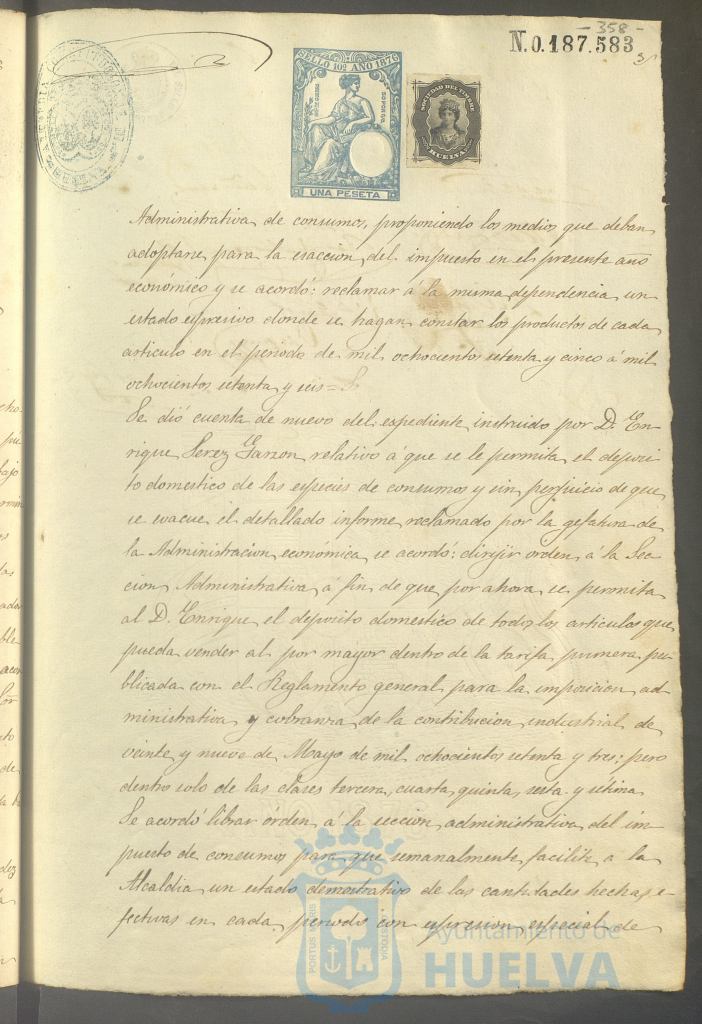 - 358 -
N.0.187.583
SELLO 10º AÑO 1876
UNA PESETA
SOCIEDAD DEL TIMBRE
HUELVA
Administrativa de consumos, proponiendo los medios que deban
adoptarse para la esaccion del impuesto en el presente año
económico y se acordó: reclamar á la misma dependencia un
estado espresivo donde se hagan constar los productos de cada
articulo en el periodo de mil ochocientos setenta y cinco á mil
ochocientos setenta y seis =
Se dió cuenta de nuevo del espediente instruido por D. En-
rique Perez Garzon relativo á que se le permita el deposi-
to domestico de las especies de consumos y sin perjuicio de que
se evacue el detallado informe reclamado por la gefatura de
la Administracion económica se acordó: dirijir orden á la Sec-
cion Administrativa á fin de que por ahora se permita
al D. Enrique el deposito domestico de todos los articulos que
pueda vender al por mayor dentro de la tarifa primera pu-
blicada con el Reglamento general para la imposicion ad-
ministrativa y cobranza de la contribucion industrial de
veinte y nueve de Mayo de mil ochocientos setenta y tres: pero
dentro solo de las clases tercera, cuarta, quinta, sesta y sétima
Se acordó librar órden á la seccion administrativa del im-
puesto de consumos para que semanalmente facilite a la
Alcaldia un estado demostrativo de las cantidades hechas e-
fectivas en cada periodo con espresion especial de
PORTUS MARIS
CUSTODIA
Ayuntamiento de
HUELVA